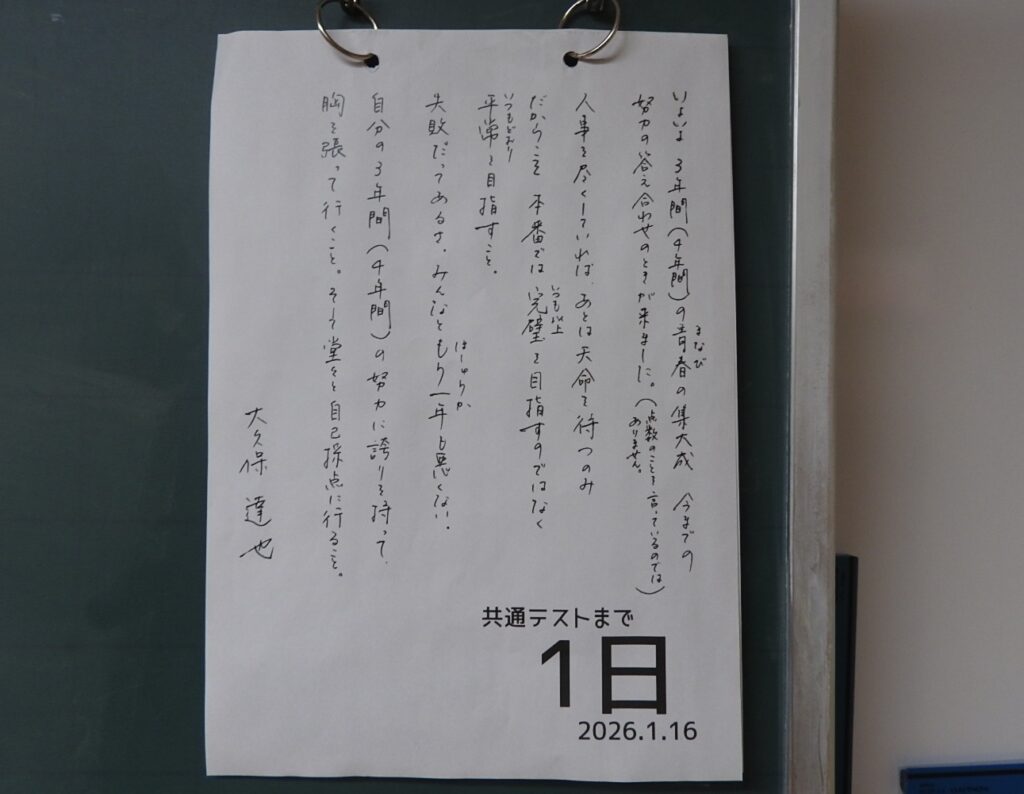 いよいよ 3年間(4年間)の青春の集大成 今までの
まなび
努力の答え合わせのときが来ました。(点数のことを言っているのではありません。)
人事を尽くしていれば、あとは天命を待つのみ
だからこそ 本番では 完璧を目指すのではなく
いつも以上
平常を目指すこと。
いつもどおり
失敗だってあるさ、みんなともう一年も悪くない。
自分の3年間(4年間)の努力に誇りを持って、
胸を張って行くこと。そう堂々と自己採点に行ること。
大久保 達也
共通テストまで
1日
2026.1.16